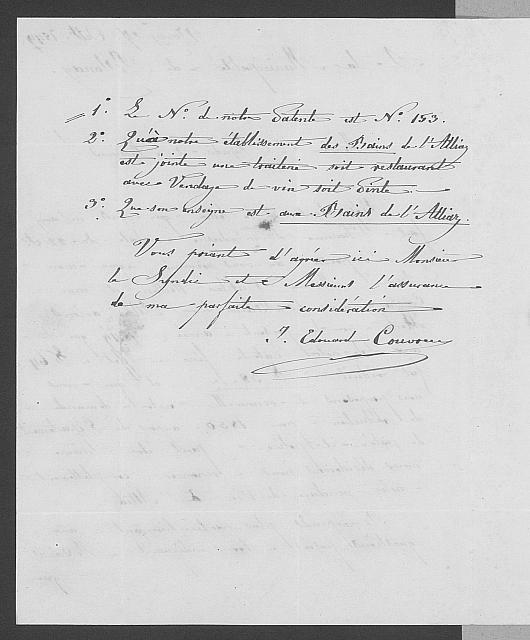 1°. Le N°. de notre Patente est N°. 153.
2°. Qu'à notre établissement des Bains de l'Alliaz
est jointe une traiterie soit restaurant
avec Vendage de vin soit Pinte.
3°. Que son enseigne est aux Bains de l'Alliaz.
Vous priant d'agréer ici Monsieur
le Syndic et Messieurs l'assurance
de ma parfaite considération
J. Edouard Couvreu